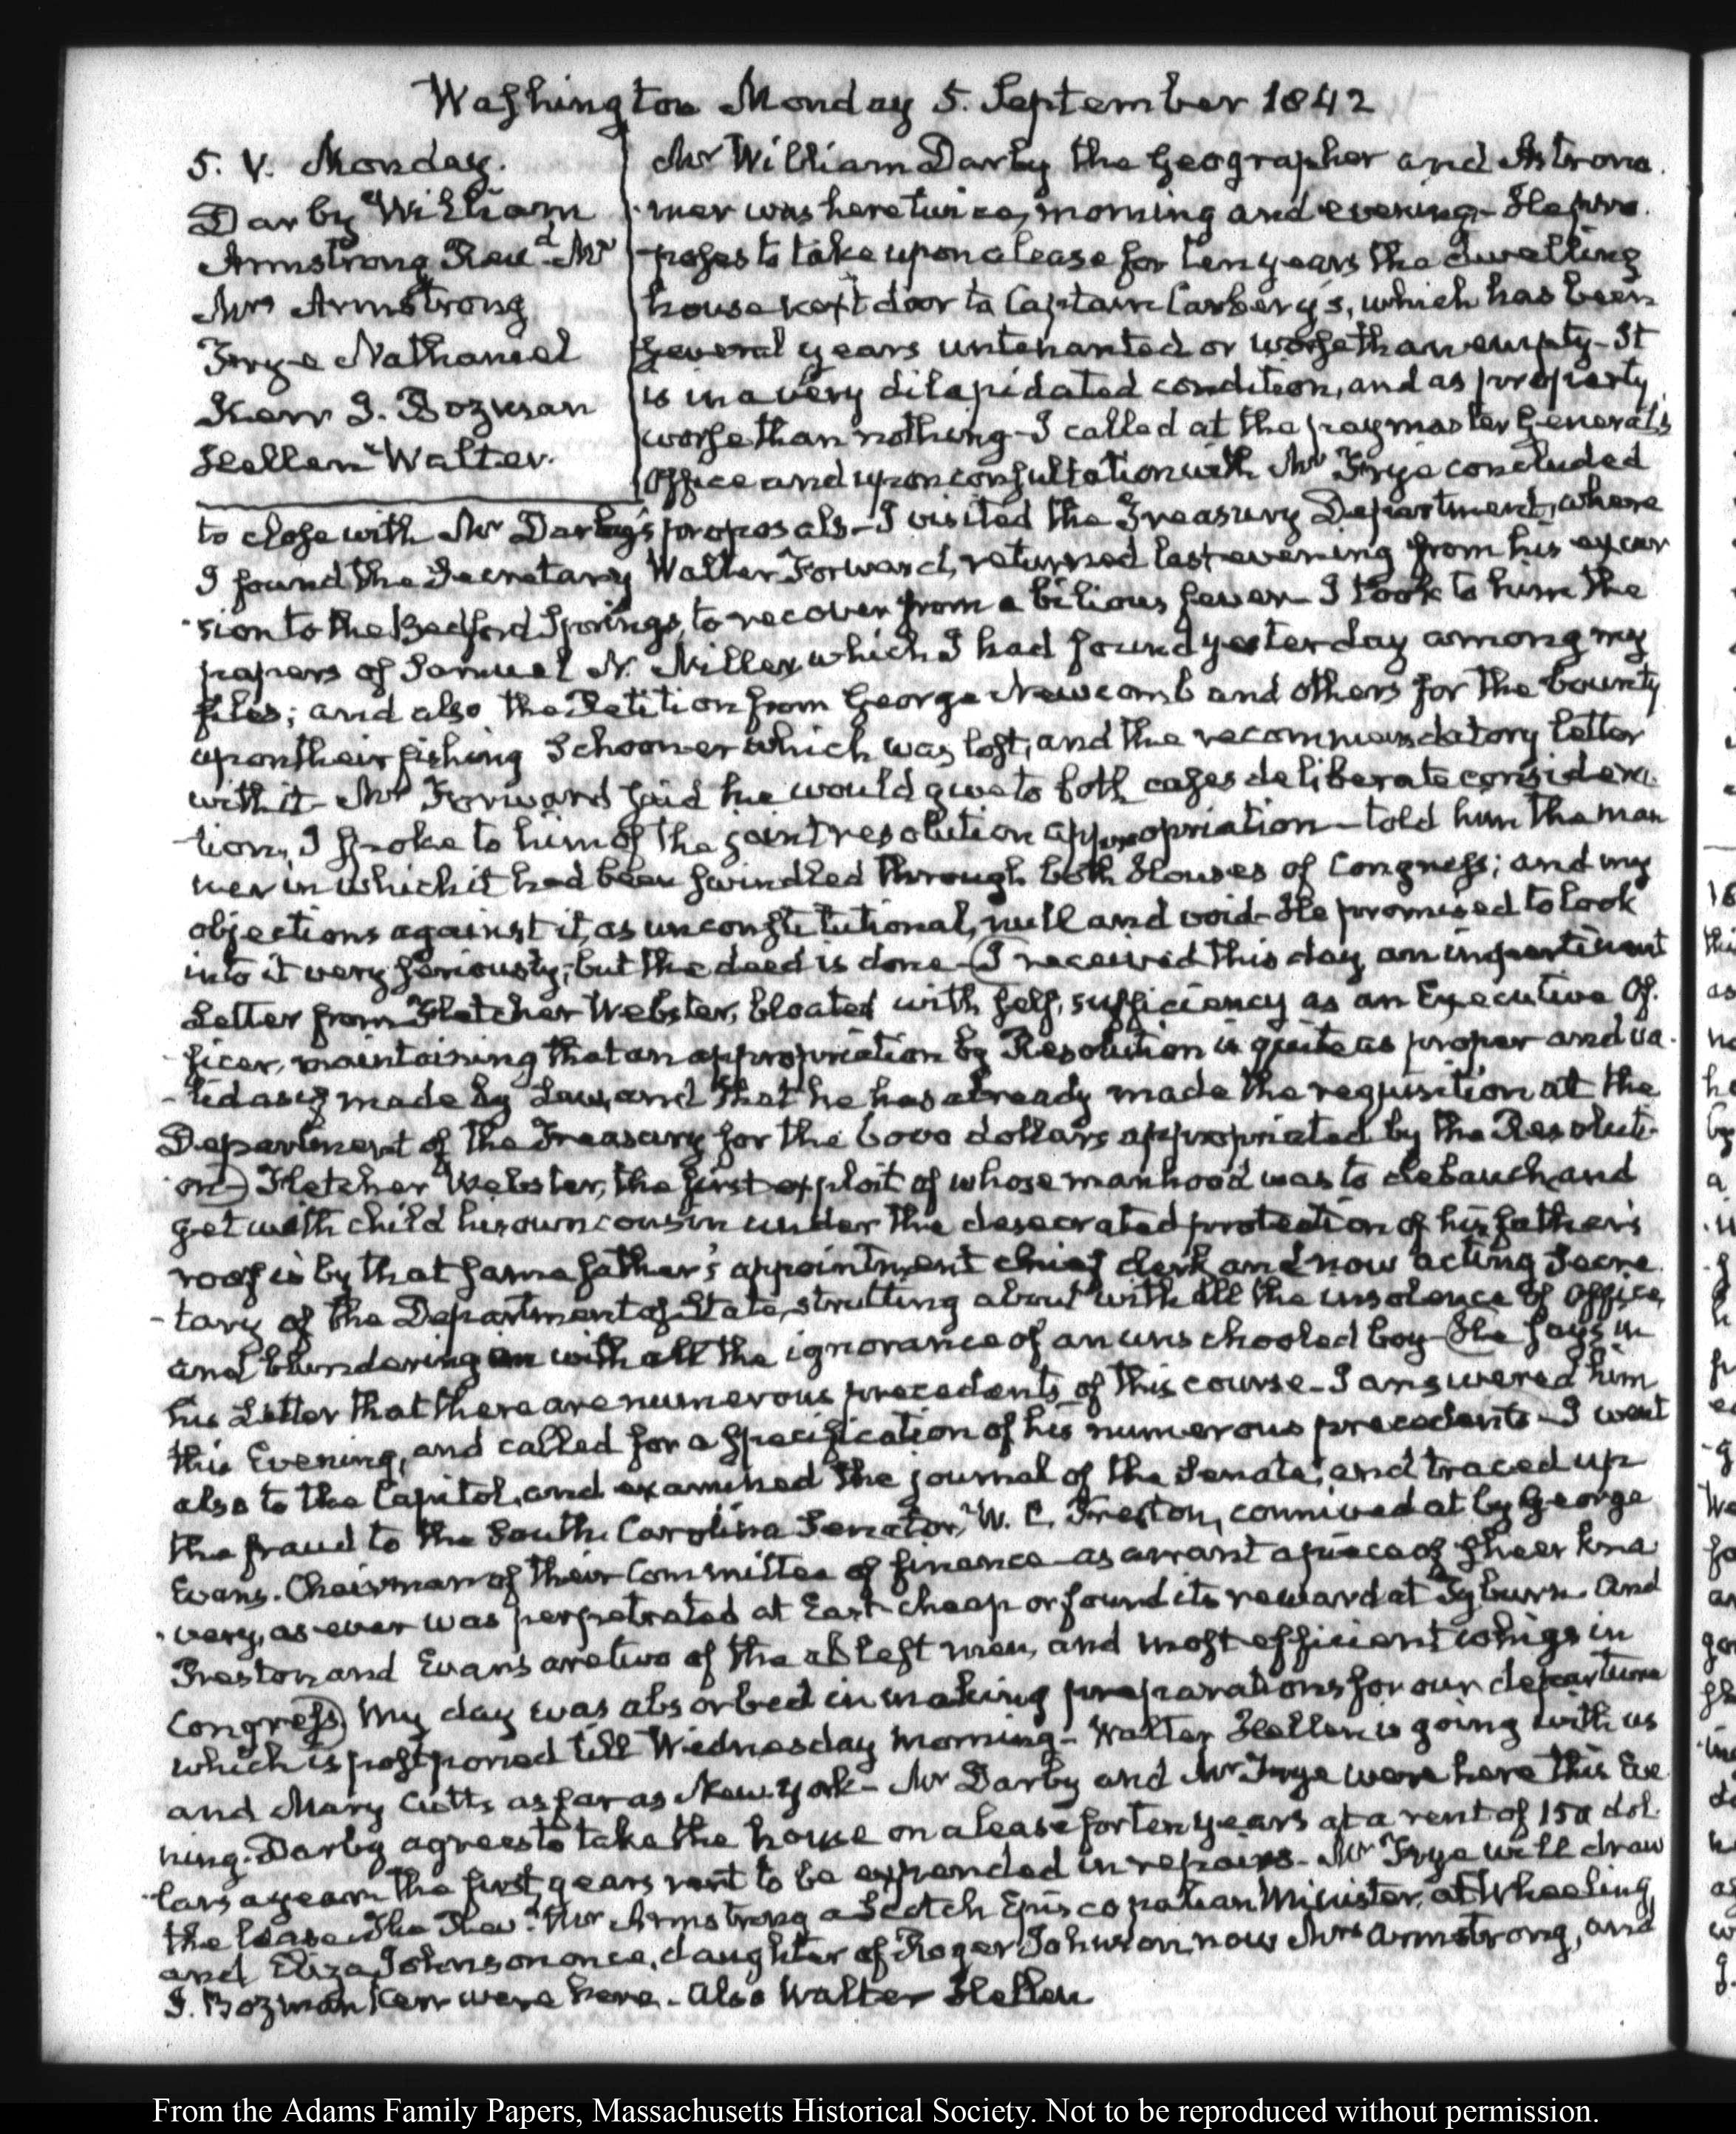 Washington Monday 5. September 1842
5. V. Monday.
Darby William
Armstrong Revd. Mr
Mrs Armstrong
Frye Nathaniel
Kerr J. Bozman
Hellen Walter.
Mr William Darby the Geographer and Astrono
-mer was here twice, morning and evening- He pro-
-poses to take upon a lease for ten years the dwelling
house next door to Captain Carbery's, which has been
several years untenanted or worse than empty- It
is in a very dilapidated condition, and as property
worse than nothing- I called at the paymaster General's
Office and upon consultation with Mr Frye concluded
to close with Mr Darby's proposals- I visited the Treasury Department, where
I found the Secretary Walter Forward, returned last evening from his excur
-sion to the Bedford Springs, to recover from a bilious fever- I took to him the
papers of Samuel N. Miller which I had found yesterday among my
files; and also the Petition from George Newcomb and others for the bounty
upon their fishing Schooner which was lost, and the recommendatory letter
with it- Mr Forward said he would give to both cases deliberate considera-
-tion, I spoke to him of the joint resolution appropriation- told him the man
ner in which it had been swindled through both Houses of Congress; and my
objections against it, as unconstitutional, null and void- He promised to look
into it very seriously; but the deed is done- (I received this day an impertinent
Letter from Fletcher Webster, bloated with self, sufficiency as an Executive Of-
-ficer, maintaining that an appropriation by Resolution is quite as proper and va-
-lid as if made by Law, and that he has already made the requisition at the
Department of the Treasury for the 6000 dollars appropriated by the Resoluti-
-on-) Fletcher Webster, the first exploit of whose manhood was to debauch and
get with child his own cousin under the desecrated protection of his father's
roof is by that same father's appointment chief clerk and now acting Secre
-tary of the Department of State, strutting about with all the insolence of Office,
and blundering on with all the ignorance of an unschooled boy- (He says in
his Letter that there are numerous precedents of this course- I answered him
this Evening, and called for a specification of his numerous precedents- I went
also to the Capitol, and examined the journal of the Senate, and traced up
the fraud to the South Carolina Senator, W. C. Preston, connived at by George
Evans. Chairman of their Committee of finance- as arrant a piece of sheer kna
-very, as ever was perpetrated at East-cheap or found its reward at Tyburn. And
Preston and Evans are two of the ablest men, and most efficient whigs in
Congress) My day was absorbed in making preparations for our departure
which is postponed till Wednesday morning- Walter Hellen is going with us
and Mary Cutts as far as New York- Mr Darby and Mr Frye were here this Eve
ning. Darby agrees to take the house on a lease for ten years at a rent of 150 dol-
-lars a year the first years rent to be expended in repairs- Mr Frye will draw
the lease. The Revd. Mr Armstrong a Scotch Episcopalian Minister, at Wheeling,
and Eliza Johnson once, daughter of Roger Johnson, now Mrs Armstrong, and
J. Bozman Kerr were here- also Walter Hellen
From the Adams Family Papers, Massachusetts Historical Society. Not to be reproduced without permission.